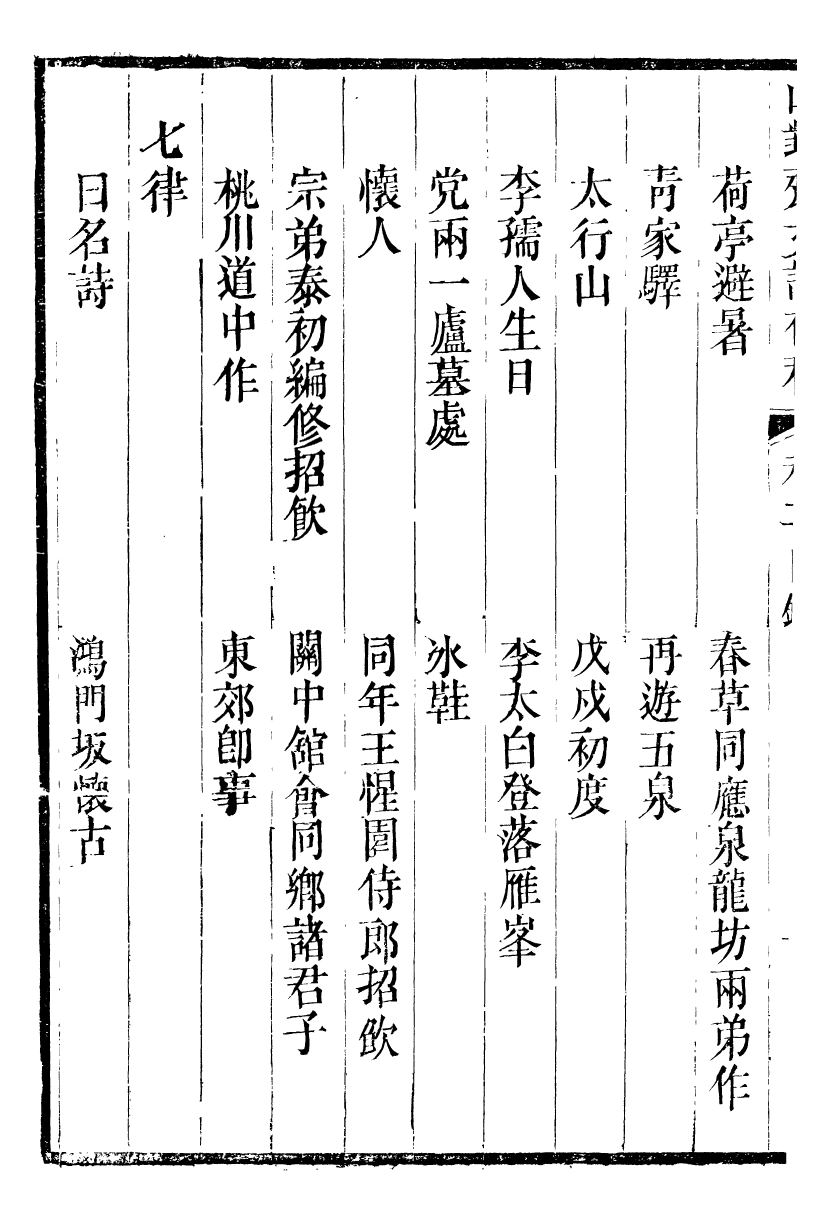 荷亭避暑　春草同應泉龍坊兩弟作
青家驛　再遊五泉
太行山　戊戌初度
李孺人生日　李太白登落雁峯
党兩一廬墓處　冰鞋
懷人　同年王惺園侍郎招飲
宗弟泰初編修招飲　關中舘會同鄉諸君子
桃川道中作　東郊卽事
七律
日名詩　鴻門坂懷古